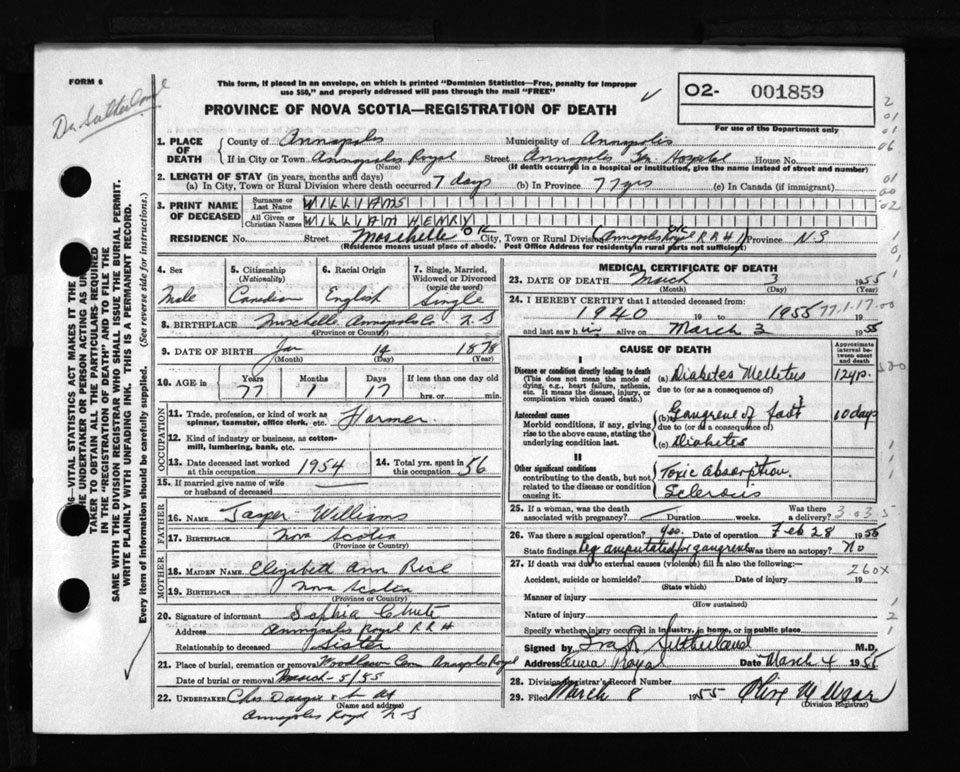 FORM 6
Dr Sutherland
This form, if placed in an envelope, on which is printed "Dominion Statistics—Free, penalty for improper
use $50," and properly addressed will pass through the mail "FREE"
PROVINCE OF NOVA SCOTIA—REGISTRATION OF DEATH
O2- 001859
For use of the Department only
1. PLACE OF DEATH County of Annapolis Municipality of Annapolis
If in City or Town Annapolis Royal Street Annapolis Gn. Hospital House No.
(Name) (If death occurred in a hospital or institution, give the name instead of street and number)
2. LENGTH OF STAY (in years, months and days)
(a) In City, Town or Rural Division where death occurred 7 days (b) In Province 77 yrs (c) In Canada (if immigrant)
3. PRINT NAME OF DECEASED Surname or Last Name WILLIAMS
All Given or Christian Names WILLIAM HENRY
RESIDENCE No. Street Moschelle OK City, Town or Rural Division (Annapolis Royal R R #1) OK Province N S
(Residence means usual place of abode. Post Office Address for residents in rural parts not sufficient)
4. Sex Male
5. Citizenship (Nationality) Canadian
6. Racial Origin English
7. Single, Married, Widowed or Divorced (write the word) Single
8. BIRTHPLACE Moschelle Annapolis Co. N. S
(Province or Country)
9. DATE OF BIRTH Jan 14 1878
(Month) (Day) (Year)
10. AGE in Years 77 Months 1 Days 17 If less than one day old
hrs. or min.
OCCUPATION
11. Trade, profession, or kind of work as spinner, teamster, office clerk, etc. Farmer.
12. Kind of industry or business, as cotton-mill, lumbering, bank, etc.
13. Date deceased last worked at this occupation 1954 14. Total yrs. spent in this occupation 56
15. If married give name of wife or husband of deceased —
FATHER
16. NAME Jasper Williams
17. BIRTHPLACE Nova Scotia
(Province or Country)
MOTHER
18. MAIDEN NAME Elizabeth Ann Rice
19. BIRTHPLACE Nova Scotia
(Province or Country)
20. Signature of informant Sophia Chute
Address Annapolis Royal R R #1
Relationship to deceased Sister
21. Place of burial, cremation or removal Woodlawn Cem Annapolis Royal
Date of burial or removal March-5/55
22. UNDERTAKER Chas Dargie
(Name and address)
Annapolis Royal N S
MEDICAL CERTIFICATE OF DEATH
23. DATE OF DEATH March 3 1955
(Month) (Day) (Year)
24. I HEREBY CERTIFY that I attended deceased from:
1940 19 to 1955 19
77.1.17.00
and last saw him alive on March 3 1955
CAUSE OF DEATH
Approximate interval between onset and death
I
Disease or condition directly leading to death
(This does not mean the mode of dying, e.g., heart failure, asthenia, etc. It means the disease, injury, or complication which caused death.)
(a) Diabetes Mellitus
due to (or as a consequence of)
Antecedent causes
Morbid conditions, if any, giving rise to the above cause, stating the underlying condition last.
(b) Gangrene of foot 10 days
due to (or as a consequence of)
(c) Diabetes
II
Other significant conditions
contributing to the death, but not related to the disease or condition causing it.
Toxic absorption.
Sclerosis
25. If a woman, was the death associated with pregnancy? Duration weeks. Was there a delivery?
26. Was there a surgical operation? yes. Date of operation Feb 28 1955
State findings Leg amputated for gangrene Was there an autopsy? No
27. If death was due to external causes (violence) fill in also the following:—
260X
Accident, suicide or homicide? Date of injury 19
(State which)
Manner of injury
(How sustained)
Nature of injury
Specify whether injury occurred in industry, in home, or in public place
Signed by Sutherland M.D.
Address Anna Royal Date March 4 1955
28. Division Registrar's Record Number
29. Filed March 8 1955 Olive M
(Division Registrar)
66—VITAL STATISTICS ACT MAKES IT THE
THE UNDERTAKER OR PERSON ACTING AS UN
TAKER TO OBTAIN ALL THE PARTICULARS REQUIRED
IN THE "REGISTRATION OF DEATH" AND TO FILE THE
SAME WITH THE DIVISION REGISTRAR WHO SHALL ISSUE THE BURIAL PERMIT.
WRITE PLAINLY WITH UNFADING INK. THIS IS A PERMANENT RECORD.
Every item of information should be carefully supplied. (See reverse side for instructions.)